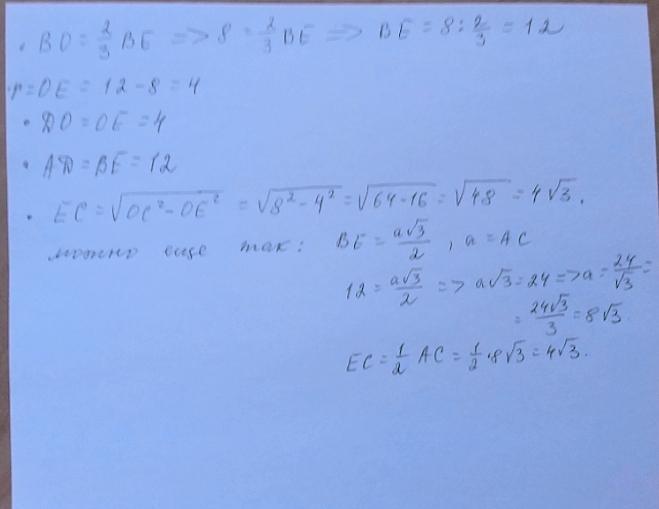 • BO = 2/3 BE => 8 = 2/3 BE => BE = 8 : 2/3 = 12
• r = OE = 12 - 8 = 4
• DO = OE = 4
• AD = BE = 12
• EC = √(OC² - OE²) = √(8² - 4²) = √(64 - 16) = √48 = 4√3.
можно еще так: BE = a√3/2 , a = AC
12 = a√3/2 => a√3 = 24 => a = 24/√3 =
= 24√3/3 = 8√3.
EC = 1/2 AC = 1/2 · 8√3 = 4√3.